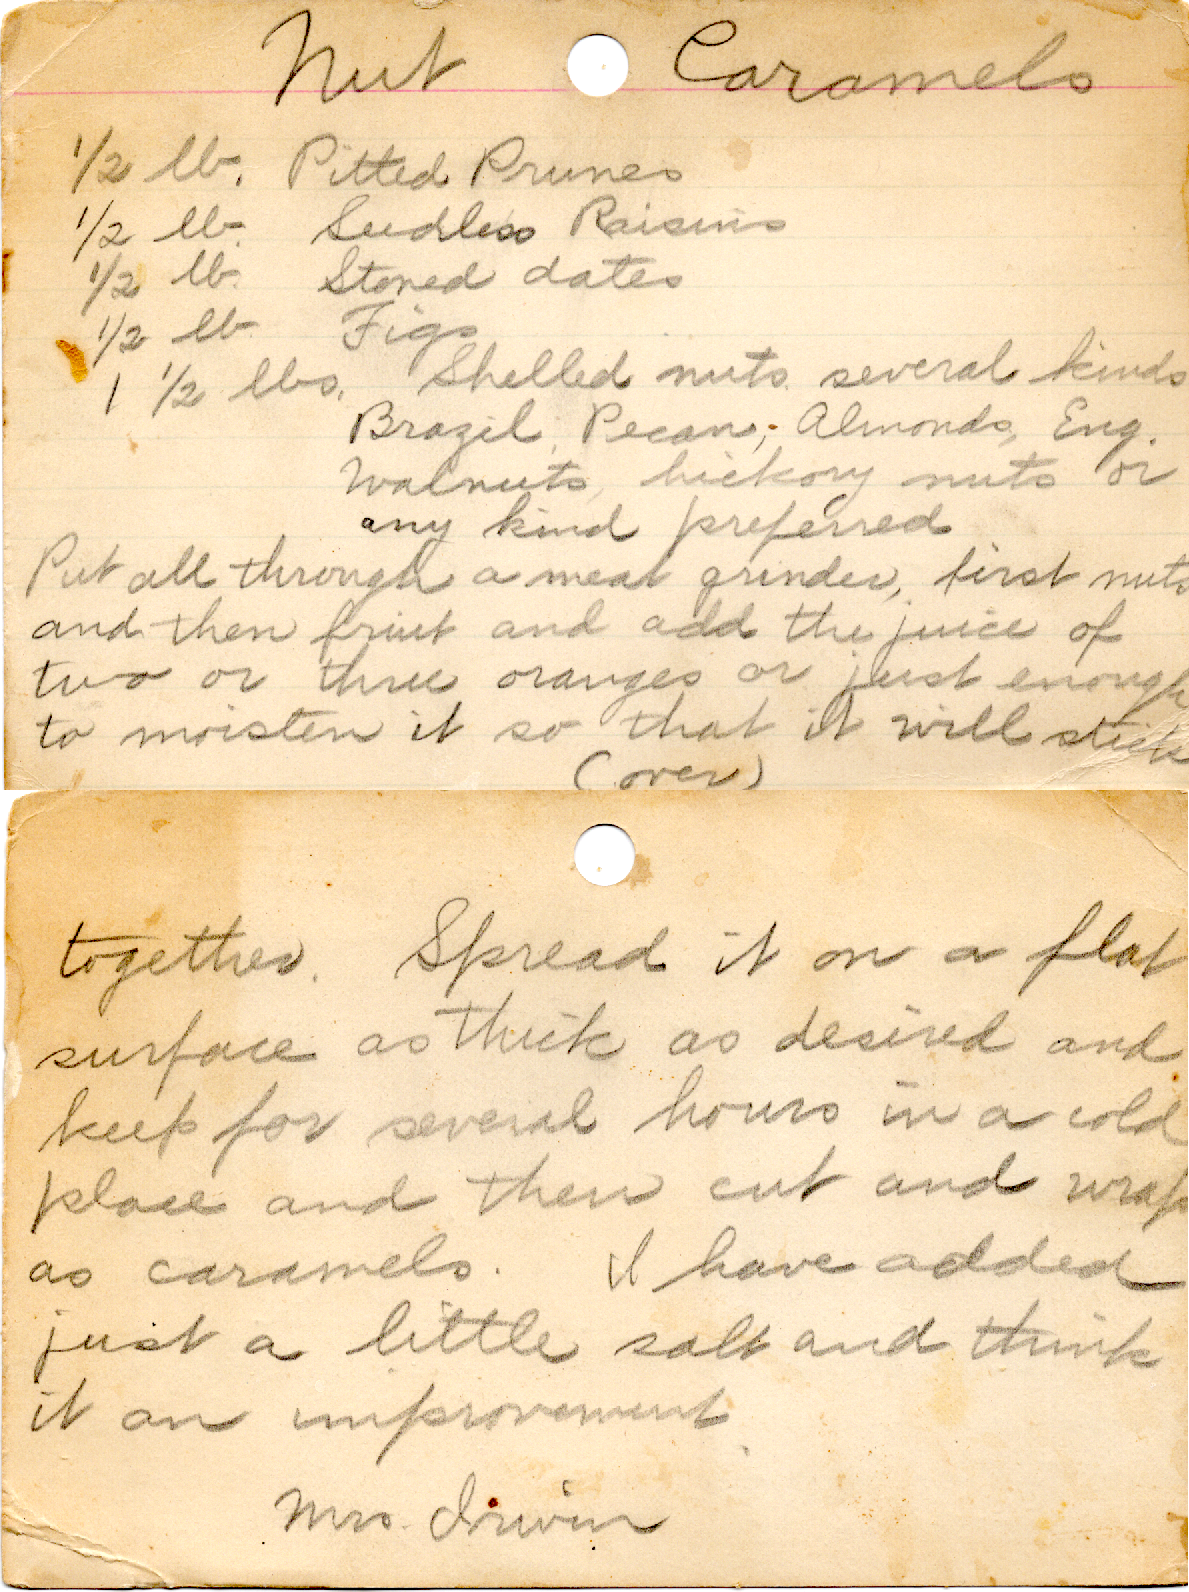 Nut Caramels
1/2 lb. Pitted Prunes
1/2 lb. Seedless Raisins
1/2 lb. Stoned dates
1/2 lb Figs
1 1/2 lbs. Shelled nuts several kinds
Brazil, Pecan, Almonds, Eng.
Walnuts, hickory nuts or
any kind preferred
Put all through a meat grinder, first nuts
and then fruit and add the juice of
two or three oranges or just enough
to moisten it so that it will stick
(over)
together. Spread it on a flat
surface as thick as desired and
keep for several hours in a cold
place and then cut and wrap
as caramels. I have added
just a little salt and think
it an improvement.
Mrs. Irwin